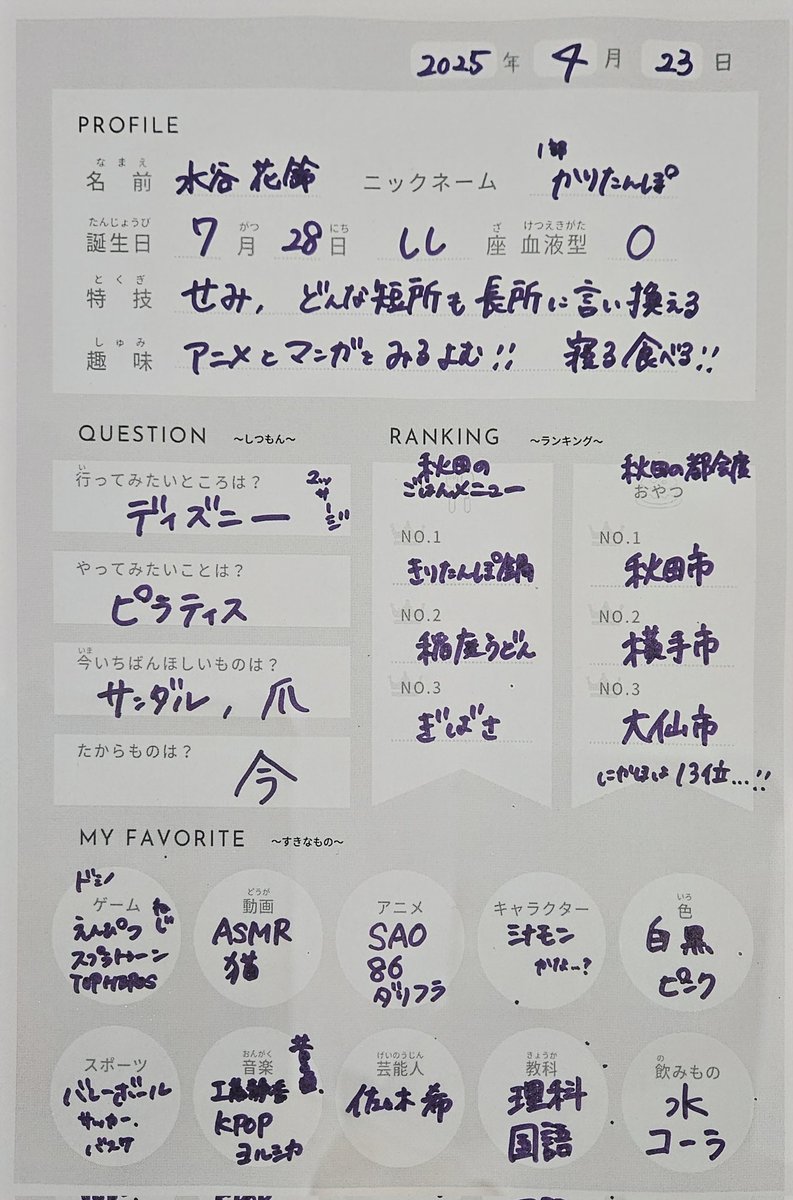 2025 年 4 月 23 日
PROFILE
なまえ
名前 水谷 花鈴 ニックネーム 1部 かりたんぽ
たんじょうび がつ にち ざ けつえきがた
誕生日 7 月 28 日 しし 座 血液型 O
とくぎ
特技 せみ, どんな短所も長所に言い換える
しゅみ
趣味 アニメとマンガをみるよむ!! 寝る食べる!!
QUESTION ～しつもん～
い
行ってみたいところは?
ディズニー
やってみたいことは?
ピラティス
いま
今いちばんほしいものは?
サンダル, 爪
たからものは?
今
RANKING ～ランキング～
秋田の
ごはんメニュー
NO.1
きりたんぽ鍋
NO.2
稲庭うどん
NO.3
ぎばさ
秋田の都会度
おやつ
NO.1
秋田市
NO.2
横手市
NO.3
大仙市
にかほは13位...!!
MY FAVORITE ～すきなもの～
ゲーム
えんぴつ
スプラトゥーン
TOPHEROS
どうが
動画
ASMR
猫
アニメ
SAO
86
ダリフラ
キャラクター
シナモン
かりん…?
いろ
色
白 黒
ピンク
スポーツ
バレーボール
サッカー.
バスケ
おんがく
音楽
工藤静香
KPOP
ヨルシカ
げいのうじん
芸能人
佐々木 希
きょうか
教科
理科
国語
の
飲みもの
水
コーラ